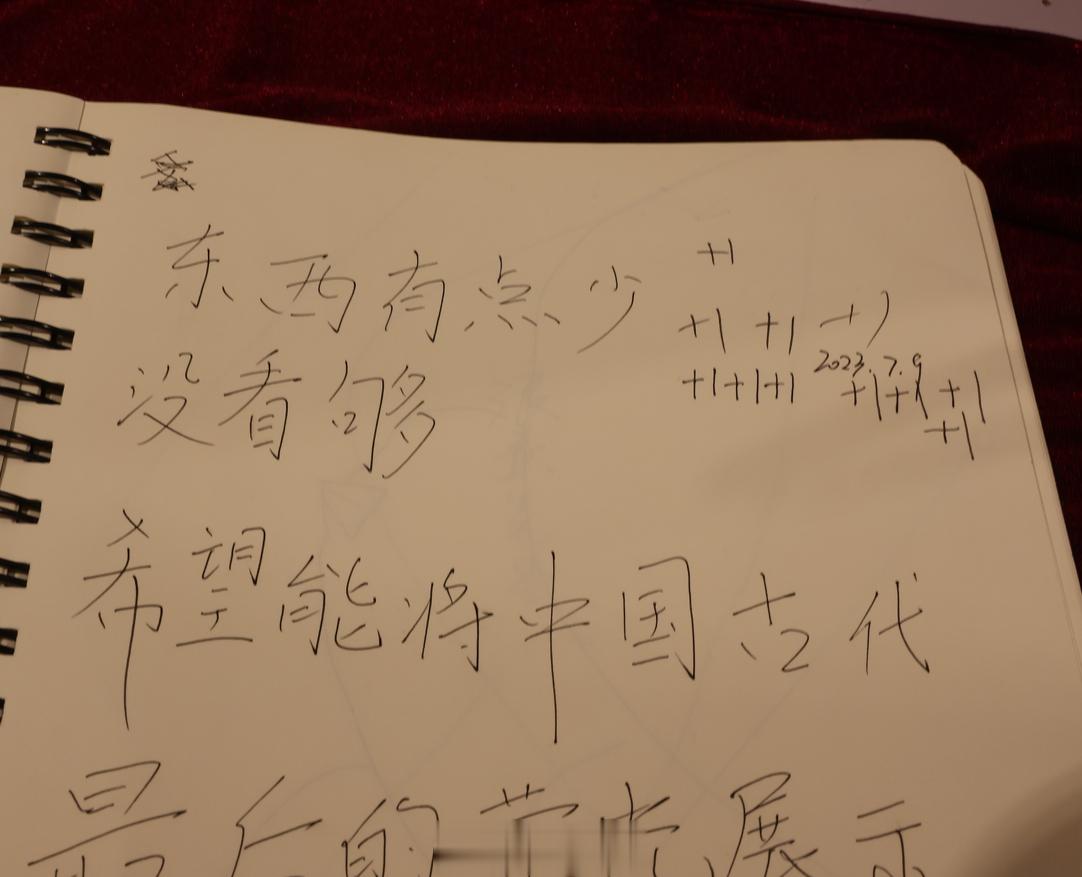 东西有点少 +1
+1 +1 +1
2023.7.9
没看够 +1+1+1 +1+1+1
+1
希望能将中国古代
最后的荣光展示